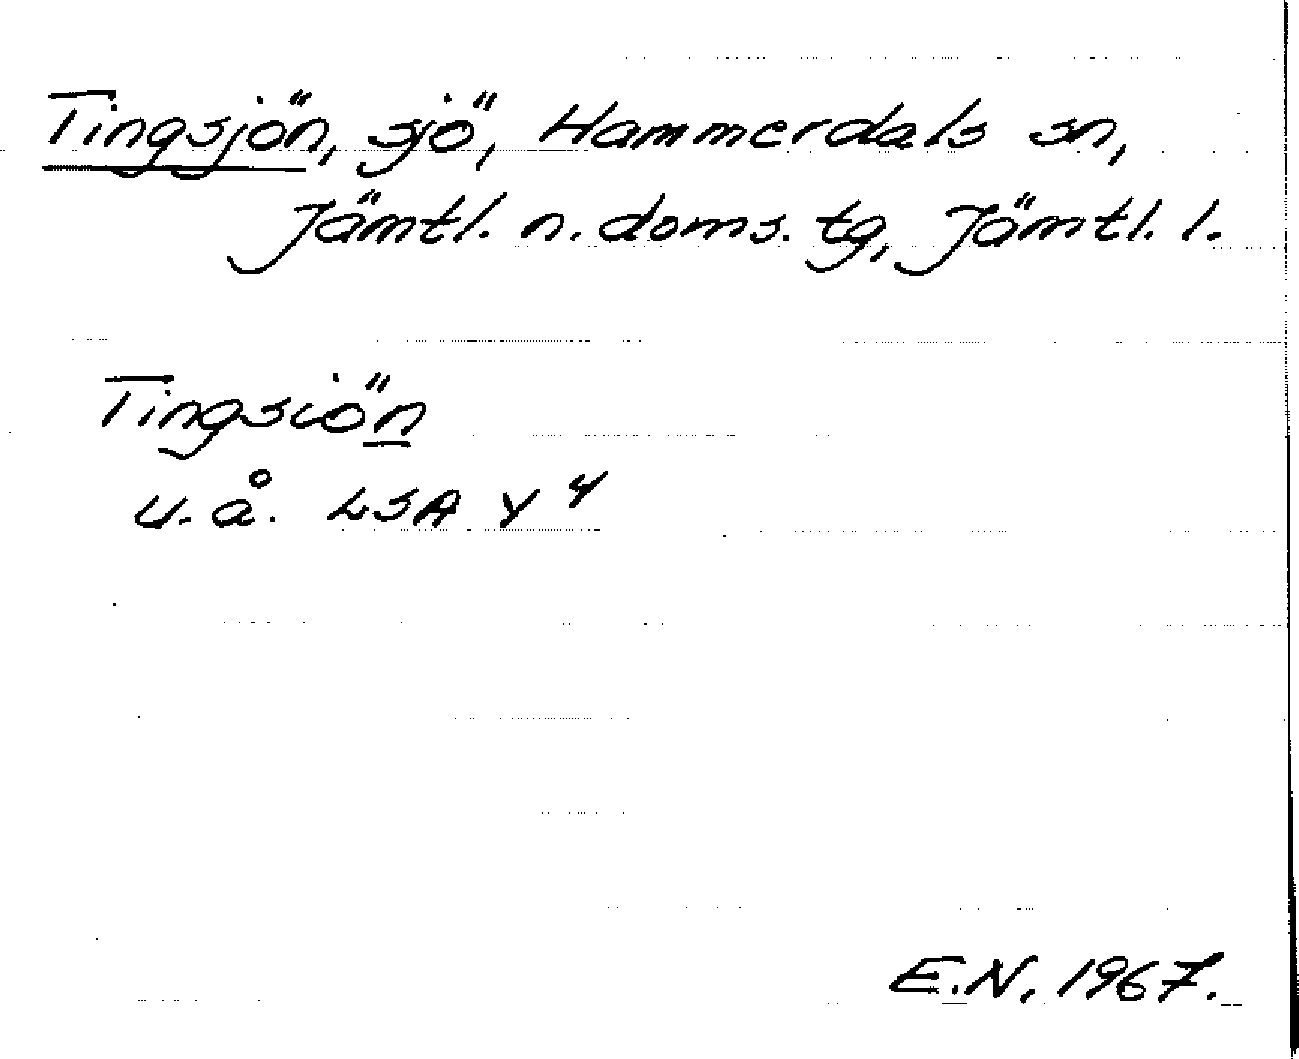 Tingsjön, sjö, Hammerdals sn,
Jämtl. n. doms. tg, Jämtl. l.
Tingsiön
u.å. LSA Y 4
E.N. 1967.